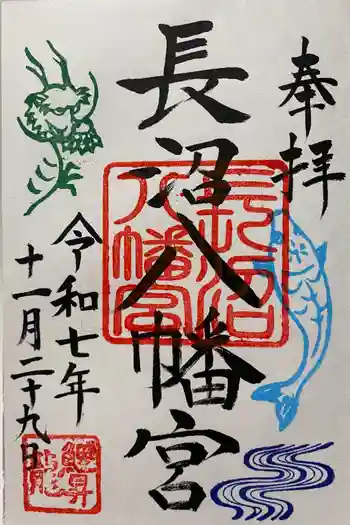 奉拝
長沼八幡宮
長沼八幡宮
令和七年
十一月二十九日
鯉昇龍